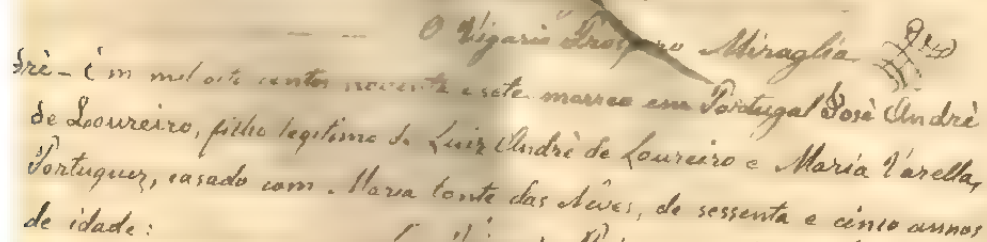 O Vigario Prospero Miraglia
drè - Em mil oito centos noventa e sete morreo em Portugal José Andrè
de Loureiro, filho legitimo de Luiz Andrè de Loureiro e Maria Varella,
Portuguez, casado com Maria das Neves, de sessenta e cinco annos
de idade: